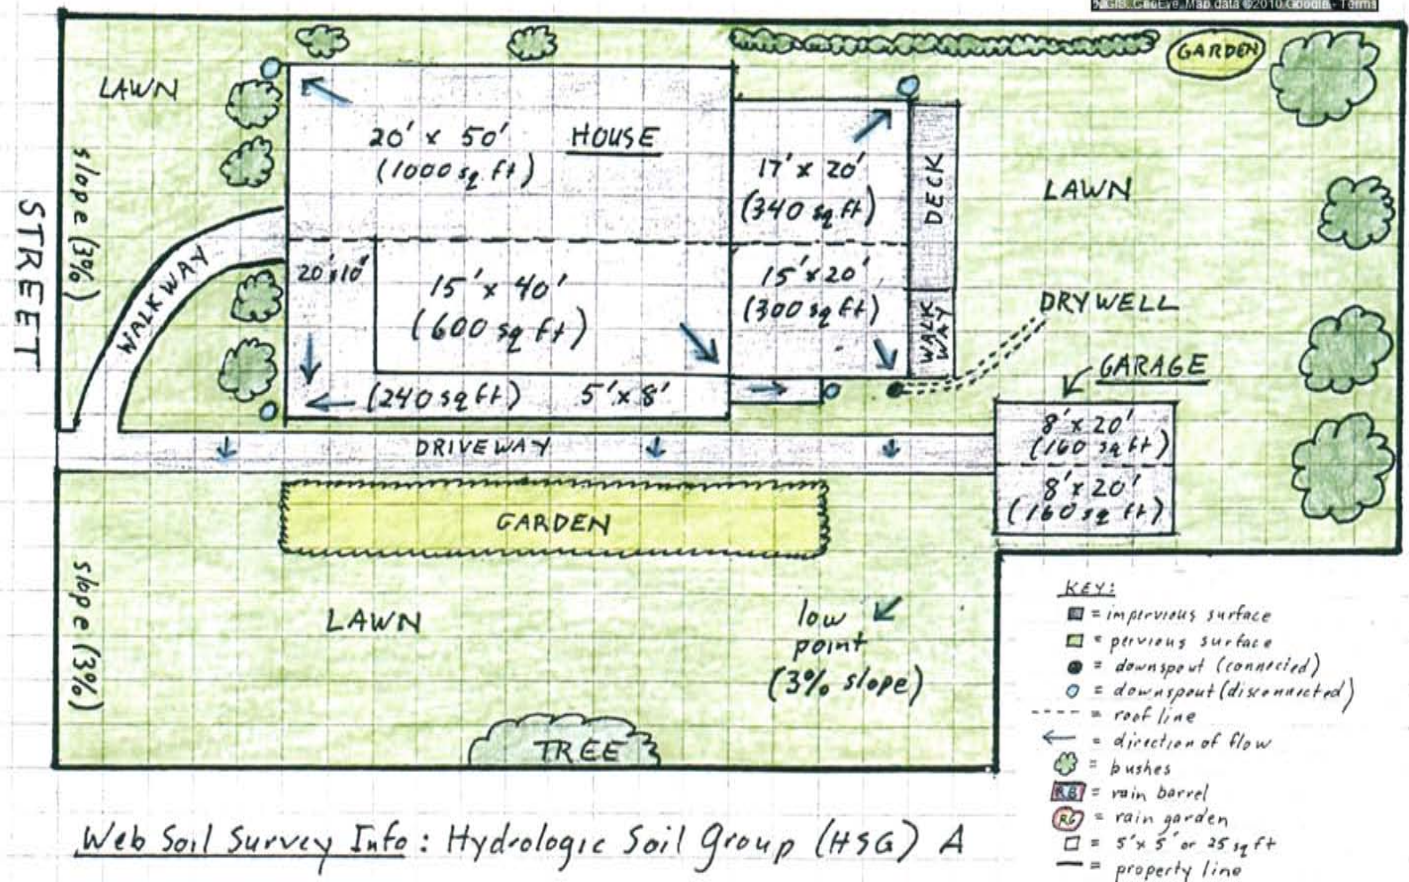 ©2010 Google - Terms
LAWN
20' x 50'
(1000 sq ft)
HOUSE
GARDEN
17' x 20'
(340 sq ft)
DECK
LAWN
slope (3%)
STREET
WALKWAY
20'x10'
15' x 40'
(600 sq ft)
15' x 20'
(300 sq ft)
WALK
WAY
DRYWELL
GARAGE
(240 sq ft) 5'x 8'
DRIVEWAY
8' x 20'
(160 sq ft)
8' x 20'
(160 sq ft)
GARDEN
slope (3%)
LAWN
low
point
(3% slope)
TREE
KEY:
= impervious surface
= pervious surface
= downspout (connected)
= downspout (disconnected)
= roof line
= direction of flow
= bushes
RB = rain barrel
RG = rain garden
= 5'x 5' or 25 sq ft
= property line
Web Soil Survey Info: Hydrologic Soil Group (HSG) A